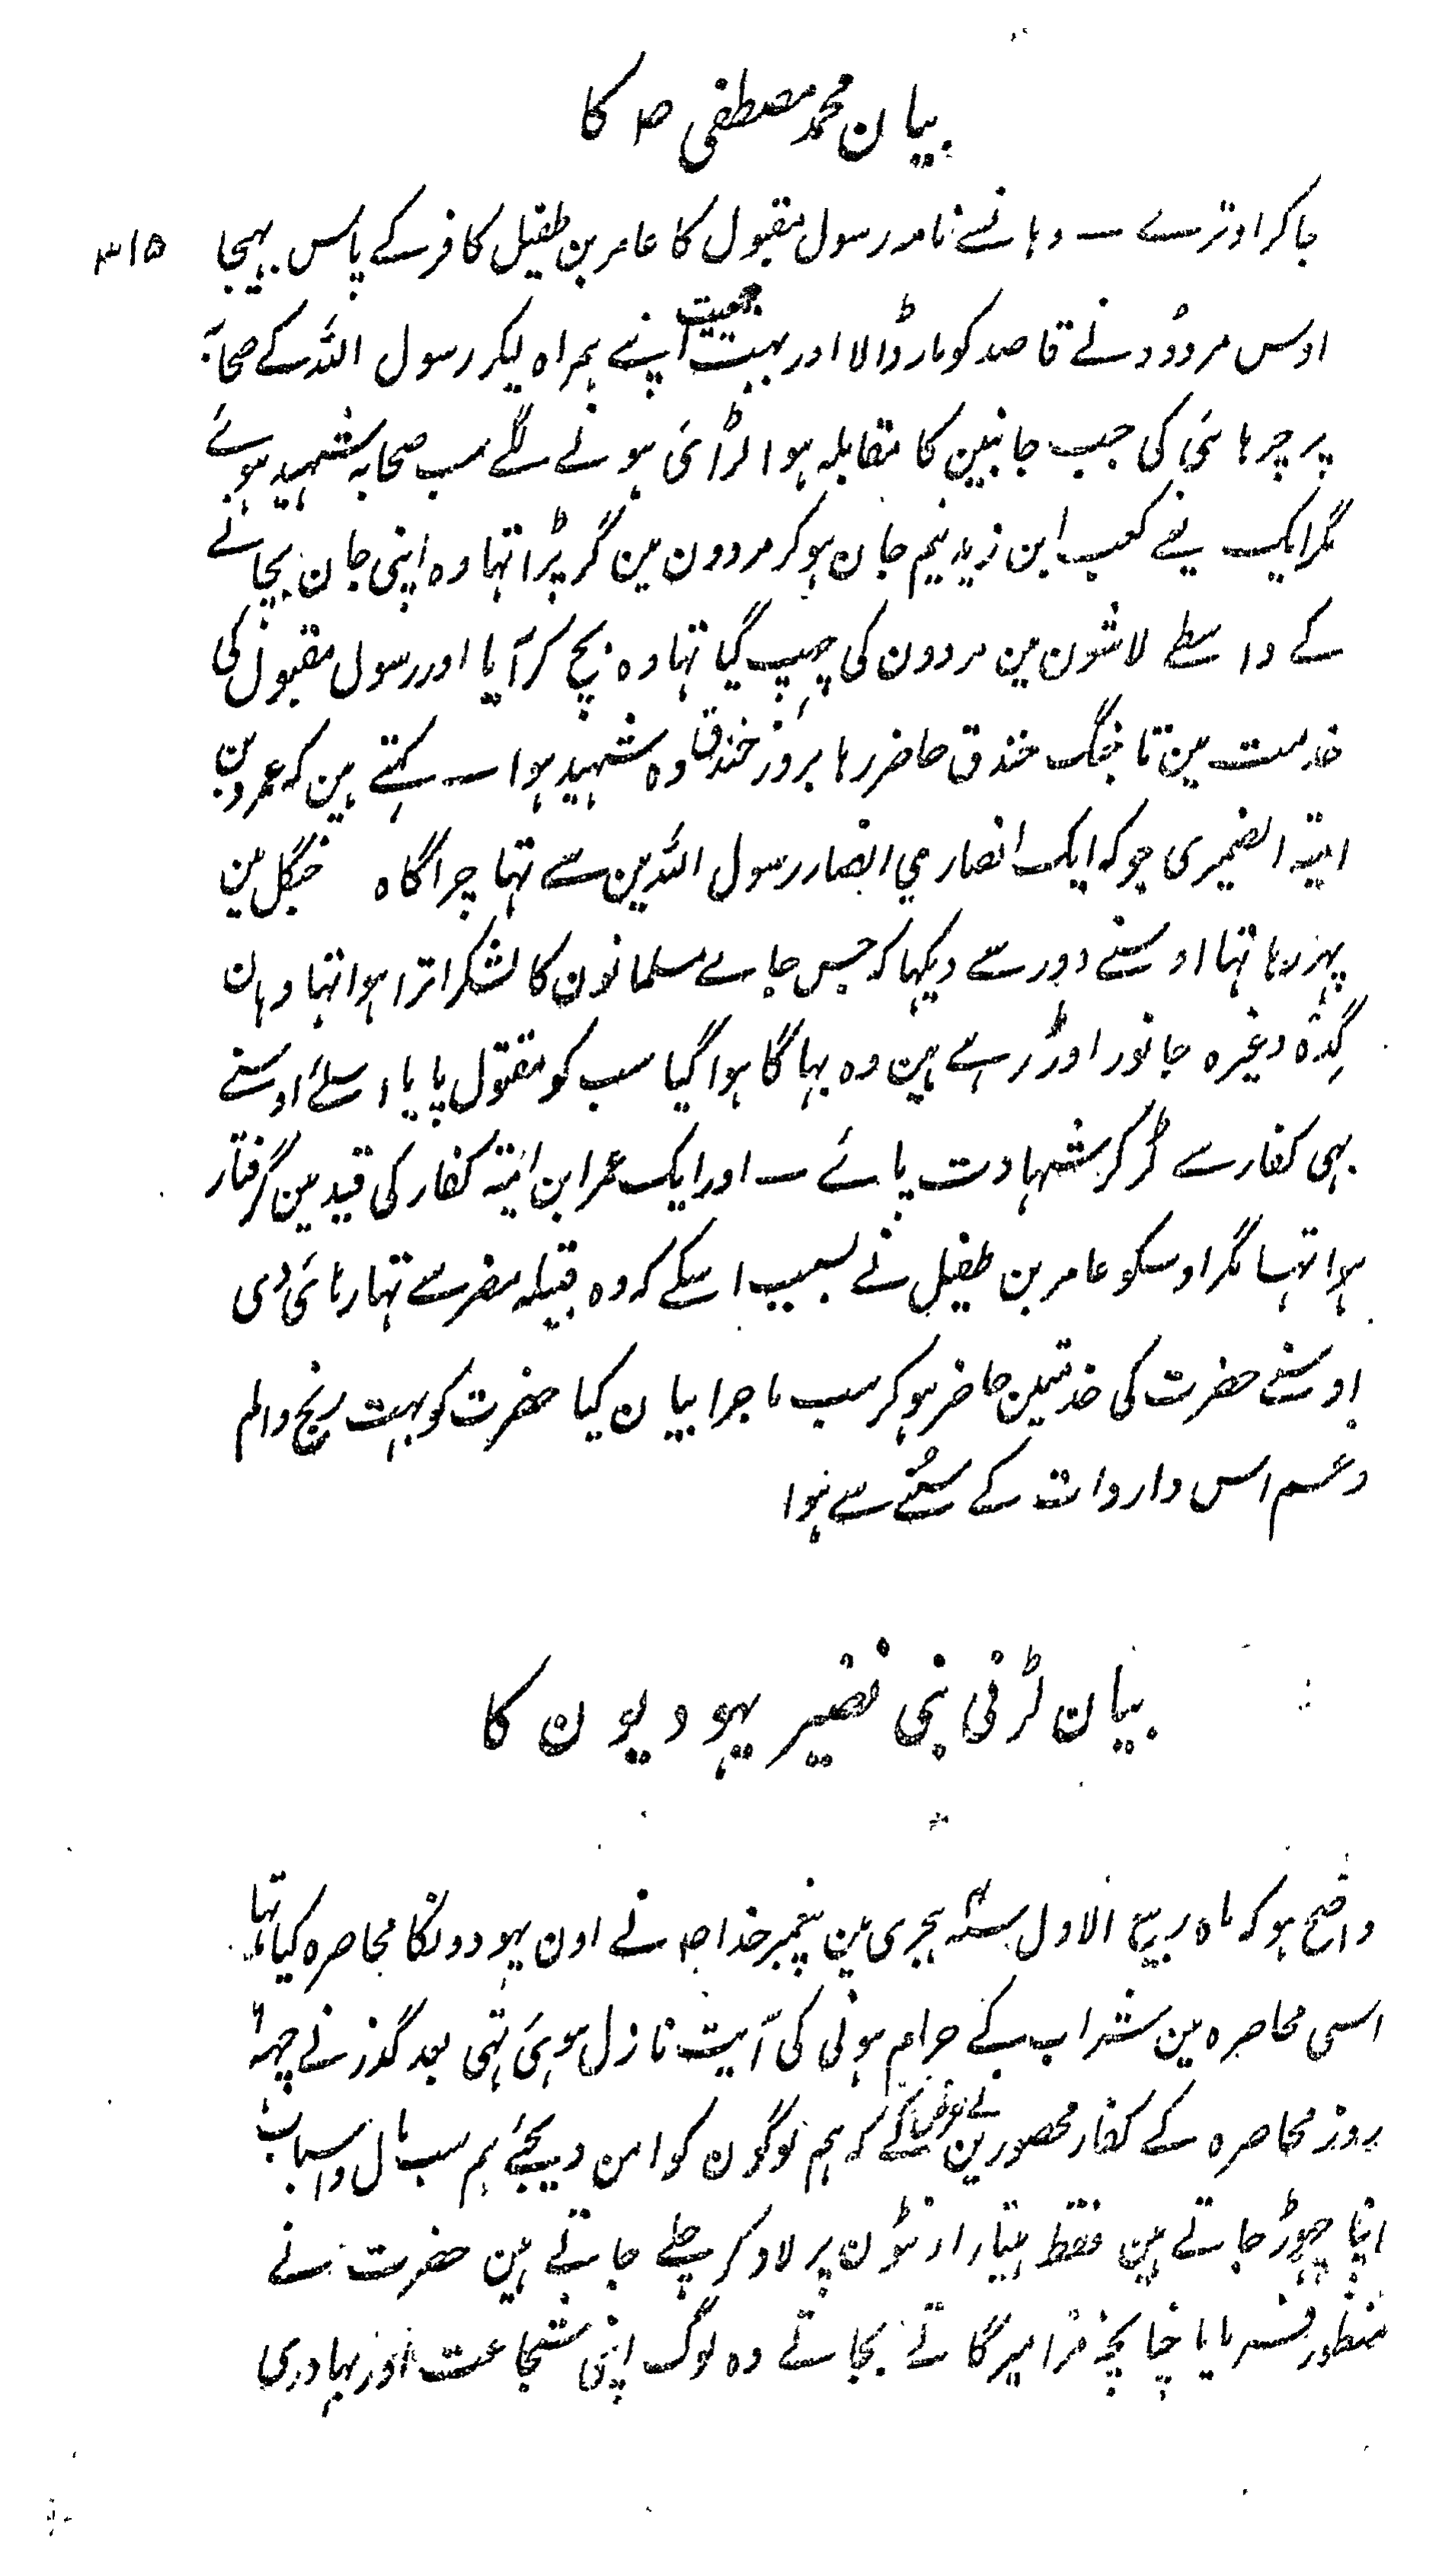 بیان محمد مصطفی ص کا
جاکر اوترے ۔ وہانسے نامہ رسول مقبول کا عامر بن طفیل کافر کے پاس بہیجا ۳۱۵
اوس مردود نے قاصد کو مار ڈالا اور بہت جمعیت اپنے ہمراہ لیکر رسول اللہ کے صحابہ
پر چرہائی کی جب جانبین کا مقابلہ ہوا لڑائی ہونے لگے سب صحابہ شہید ہوئے
مگر ایک یعنے کعب ابن زید نیم جان ہوکر مردون مین گر پڑا تہا وہ اپنی جان بچانے
کے واسطے لاشون مین مردون کی چہپ گیا تہا وہ بچ کر آیا اور رسول مقبول کی
خدمت مین تا جنگ خندق حاضر رہا بروز خندق وہ شہید ہوا ۔ کہتے ہین کہ عمرو بن
امیّہ الضمیری جو کہ ایک انصاری انصار رسول اللہ مین سے تہا چراگاہ جنگل مین
پہر رہا تہا اوسنے دور سے دیکہا کہ جس جاے مسلمانون کا لشکر اترا ہوا تہا وہان
گِدہ وغیرہ جانور اوڑ رہے ہین وہ بہاگا ہوا گیا سب کو مقتول پایا اسلئے اوسنے
بہی کفار سے لڑکر شہادت پائے ۔ اور ایک عمر ابن امّیہ کفار کی قید مین گرفتار
ہوا تہا مگر اوسکو عامر بن طفیل نے بسبب اسکے کہ وہ قبیلہ مضر سے تہا رہائی دی
اوسنے حضرت کی خدمتمین حاضر ہوکر سب ماجرا بیان کیا حضرت کو بہت رنج والم
وغم اس واردات کے سُننے سے ہوا
بیان لڑنی بنی نضیر یہودیون کا
واضح ہو کہ ماہ ربیع الاول سنہ ۴ ہجری مین پیغمبر خدا ص نے اون یہودونکا محاصرہ کیا تہا
اسی محاصرہ مین شراب کے حرام ہونی کی آیت نازل ہوئی تہی بعد گذرنے چہہ ۶
روز محاصرہ کے کفار محصورین نے عرض کے کہ ہم لوگون کو امن دیجئے ہم سب مال واسباب
اپنا چہوڑ جاتے ہین فقط ہتیار اونٹون پر لاد کر چلے جاتے ہین حضرت نے
منظور فرمایا چنانچہ مزامیر گاتے بجاتے وہ لوگ اپنی شجاعت اور بہادری